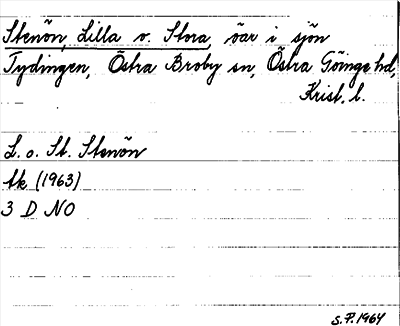 Stenön, Lilla o. Stora, öar i sjön
Tydingen, Östra Broby sn, Östra Göinge hd,
Krist. l.
L. o. St. Stenön
tk (1963)
3 D NO
S.P. 1964